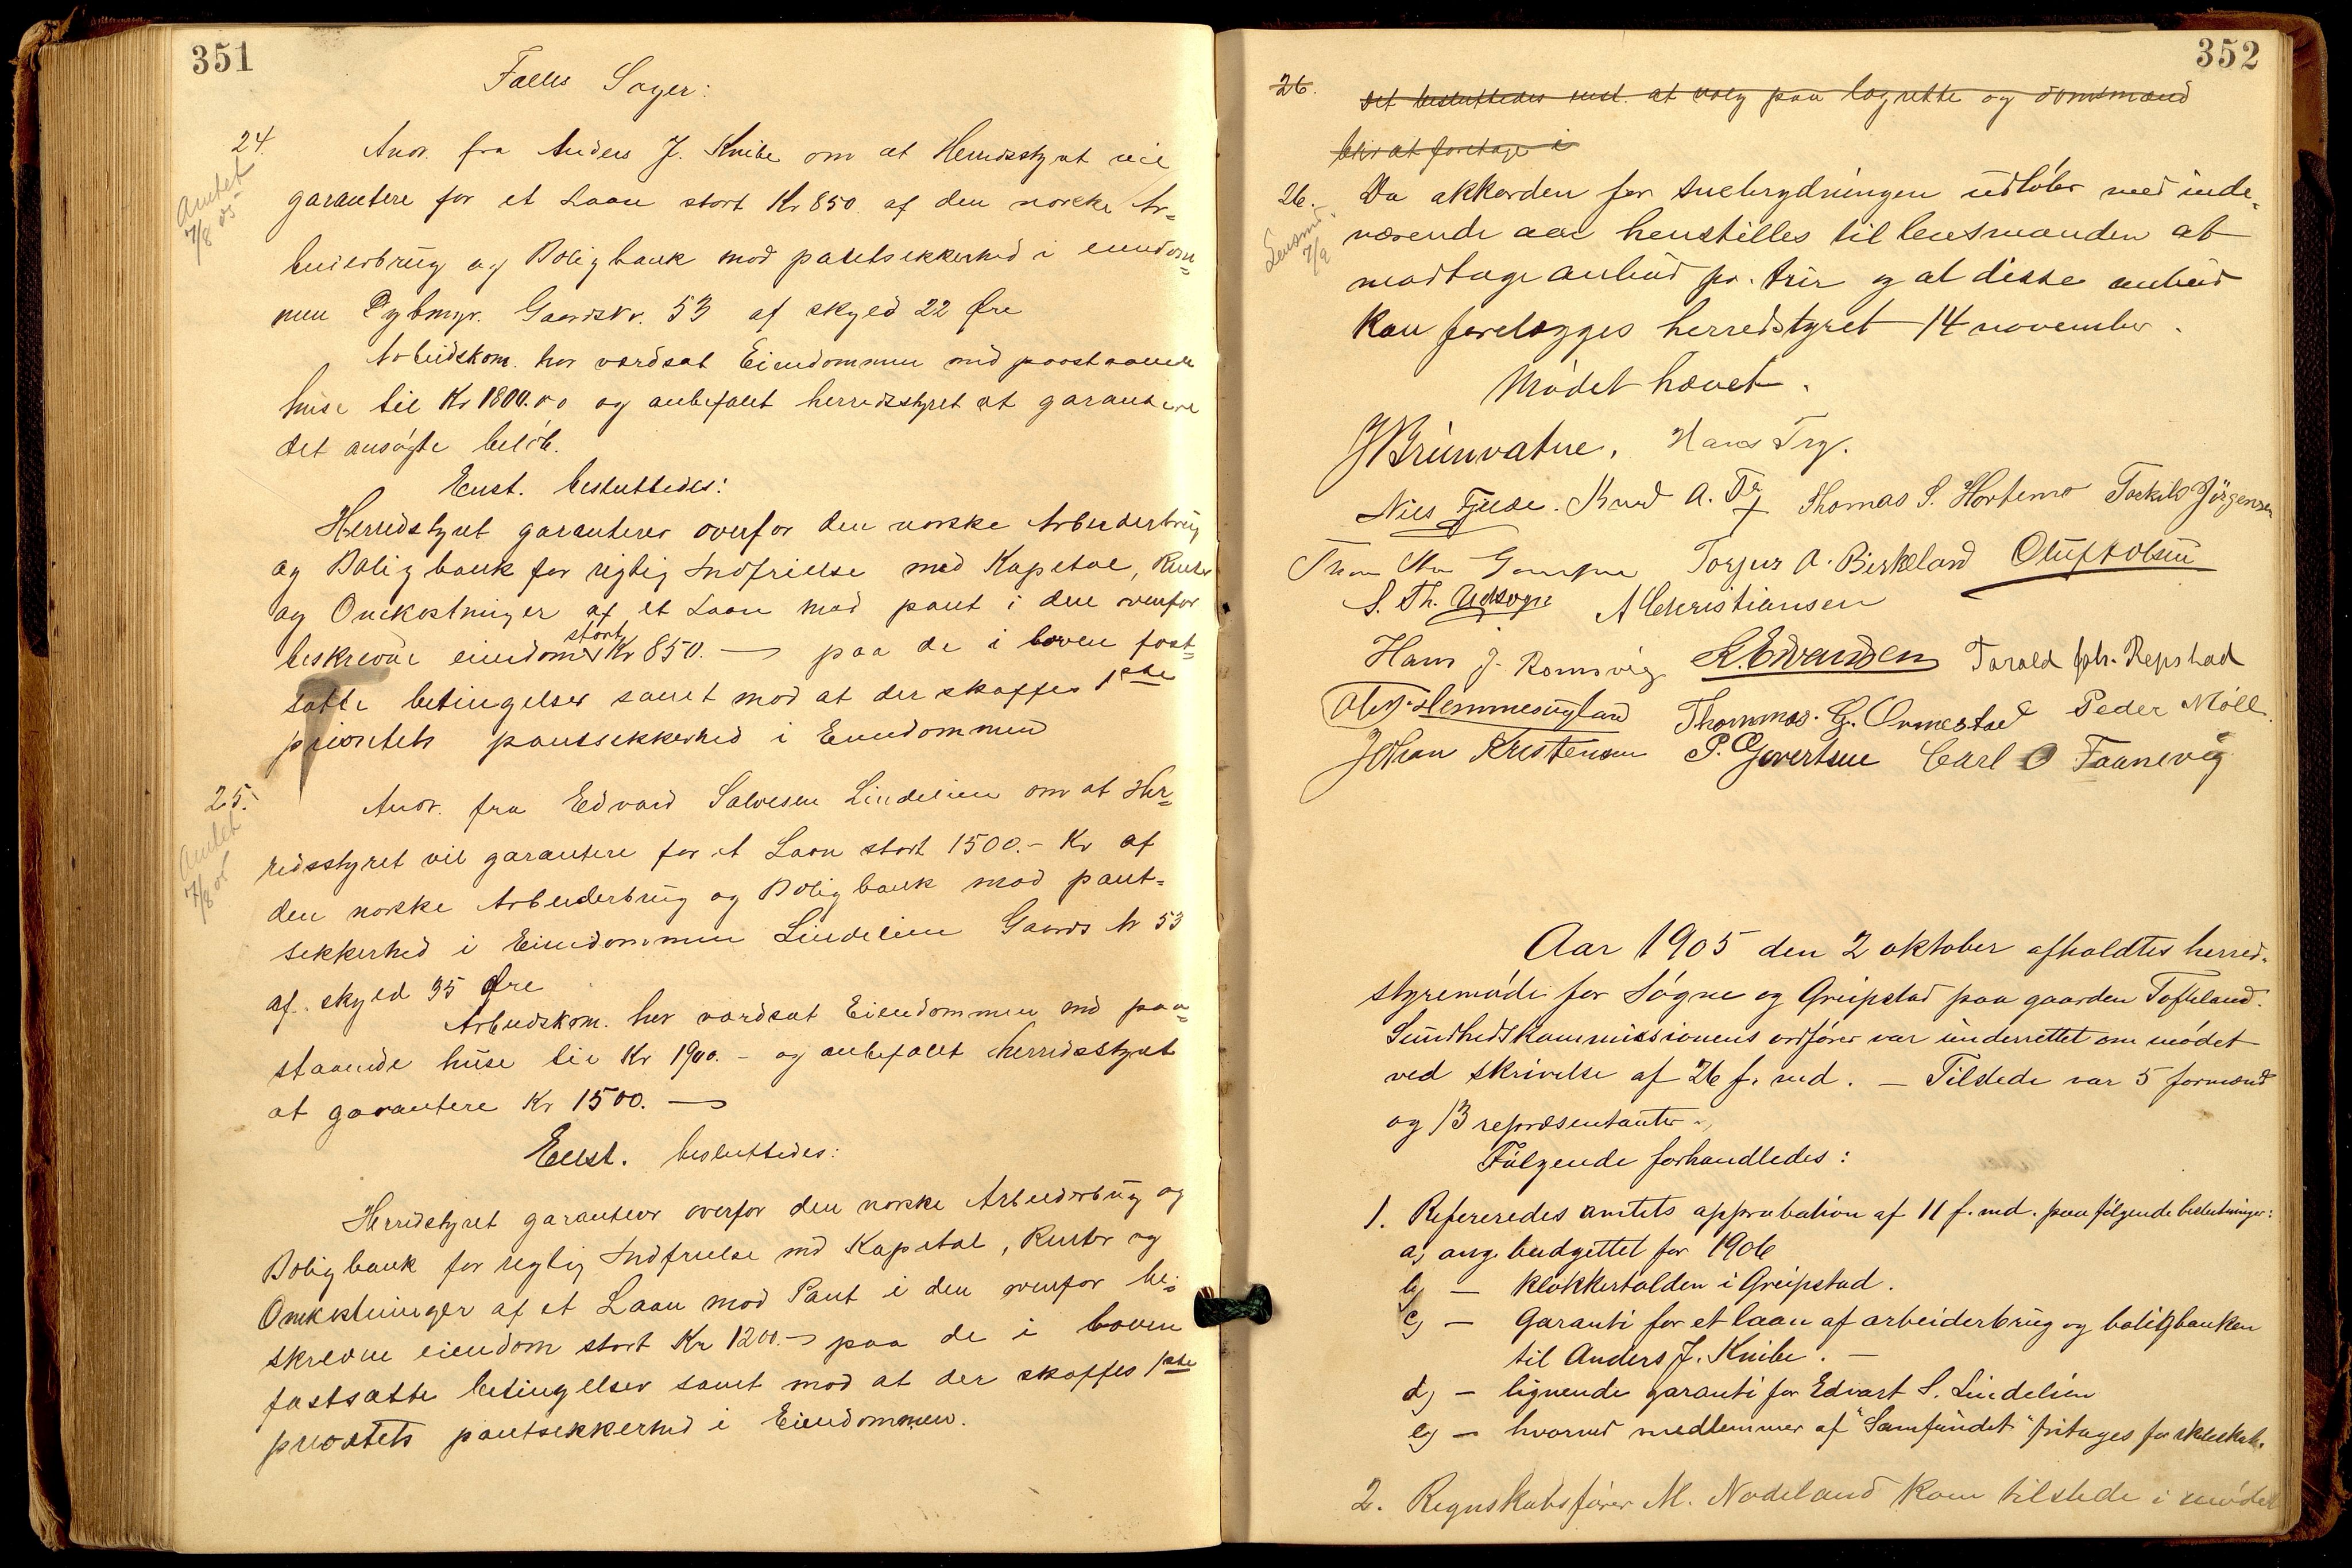 351
Fælles Sager:
24.
Amtet
7/8 05
Anr. fra Anders J. Knibe om at Herredsstyret vil
garantere for et Laan stort Kr 850. af den norske Ar=
beiderbrug og Boligbank mod pantsekkerhed i eiendom=
men Gaardsnr. 53 af skyld 22 Øre
Arbeidskom. har værdsat Eiendommen med paastaaende
huse til Kr 1800.00 og anbefalet herredsstyret at garantere
det ansøgte beløb.
Enst. besluttedes:
Herredstyret garanterer overfor den norske Arbeiderbrug
og Boligbank for rigtig Indfrielse med Kapital, Renter
og Omkostninger af et Laan mod pant i den ovenfor
beskrevne eiendom stort Kr 850. — paa de i loven fast=
satte betingelser samt mod at der skaffes 1ste
prioritets pantsekkerhed i Eiendommen
25.
Amtet
7/8 05
Anr. fra Edvard Salvesen Lindelien om at Her=
redsstyret vil garantere for et Laan stort 1500.- Kr af
den norske Arbeiderbrug og Boligbank mod pant=
sekkerhed i Eiendommen Lindelien Gaards Nr 53
af skyld 35 Øre
Arbeidskom. har værdsat Eiendommen med paa=
staaende huse til Kr 1900.- og anbefalet herredsstyret
at garantere Kr 1500. —
Enst. besluttedes:
Herredstyret garanterer overfor den norske Arbeiderbrug og
Boligbank for rigtig Indfrielse med Kapital, Renter og
Omkostninger af et Laan mod Pant i den ovenfor be=
skrevne eiendom stort Kr 1200.- paa de i loven
fastsatte betingelser samt mod at der skaffes 1ste
prioritets pantsekkerhed i Eiendommen.
352
26. Det besluttedes enst. at valg paa lagrette og domsmænd
blir at foretage i
26.
Lensmd.
7/9
Da akkorden for snebrydningen udløber med inde-
værende aar henstilles til lensmanden at
modtage anbud pr. brir og at disse anbud
kan forelægges herredstyret 14 november.
Mødet hævet.
J Brunvatne. Hans Try.
Nils Tjude. Knud A. Try Thomas S. Hortemo Torkild Jörgensen
Torjus A. Birkeland Oluf A Olsen
S. Th. Udsogn A Christiansen
Hans J. Romsvig K. Edvardsen Tarald Joh. Repstad
Ole T. Hemmesugland Thommas. G. Ormestad Peder Möll.
Johan Kristensen P. Govertsen Carl O Faanevig
Aar 1905 den 2 oktober afholdtes herred-
styremøde for Søgne og Greipstad paa gaarden Tofteland.
Sundhedskommissionens ordfører var underrettet om mødet
ved skrivelse af 26 f. md. — Tilstede var 5 formænd
og 13 repræsentanter.
Følgende forhandledes:
1. Refereredes amtets approbation af 11 f. md. paa følgende beslutninger:
a) ang. budgettet for 1906
b) — klokkertolden i Greipstad.
c) — Garanti for et laan af arbeiderbrug og boligbanken
til Anders J. Knibe. —
d) — lignende garanti for Edvart S. Lindelien
e) — hvorved medlemmer af "Samfundet" fritages for skoleskat.
2. Regnskabsfører M. Nodeland kom tilstede i mødet